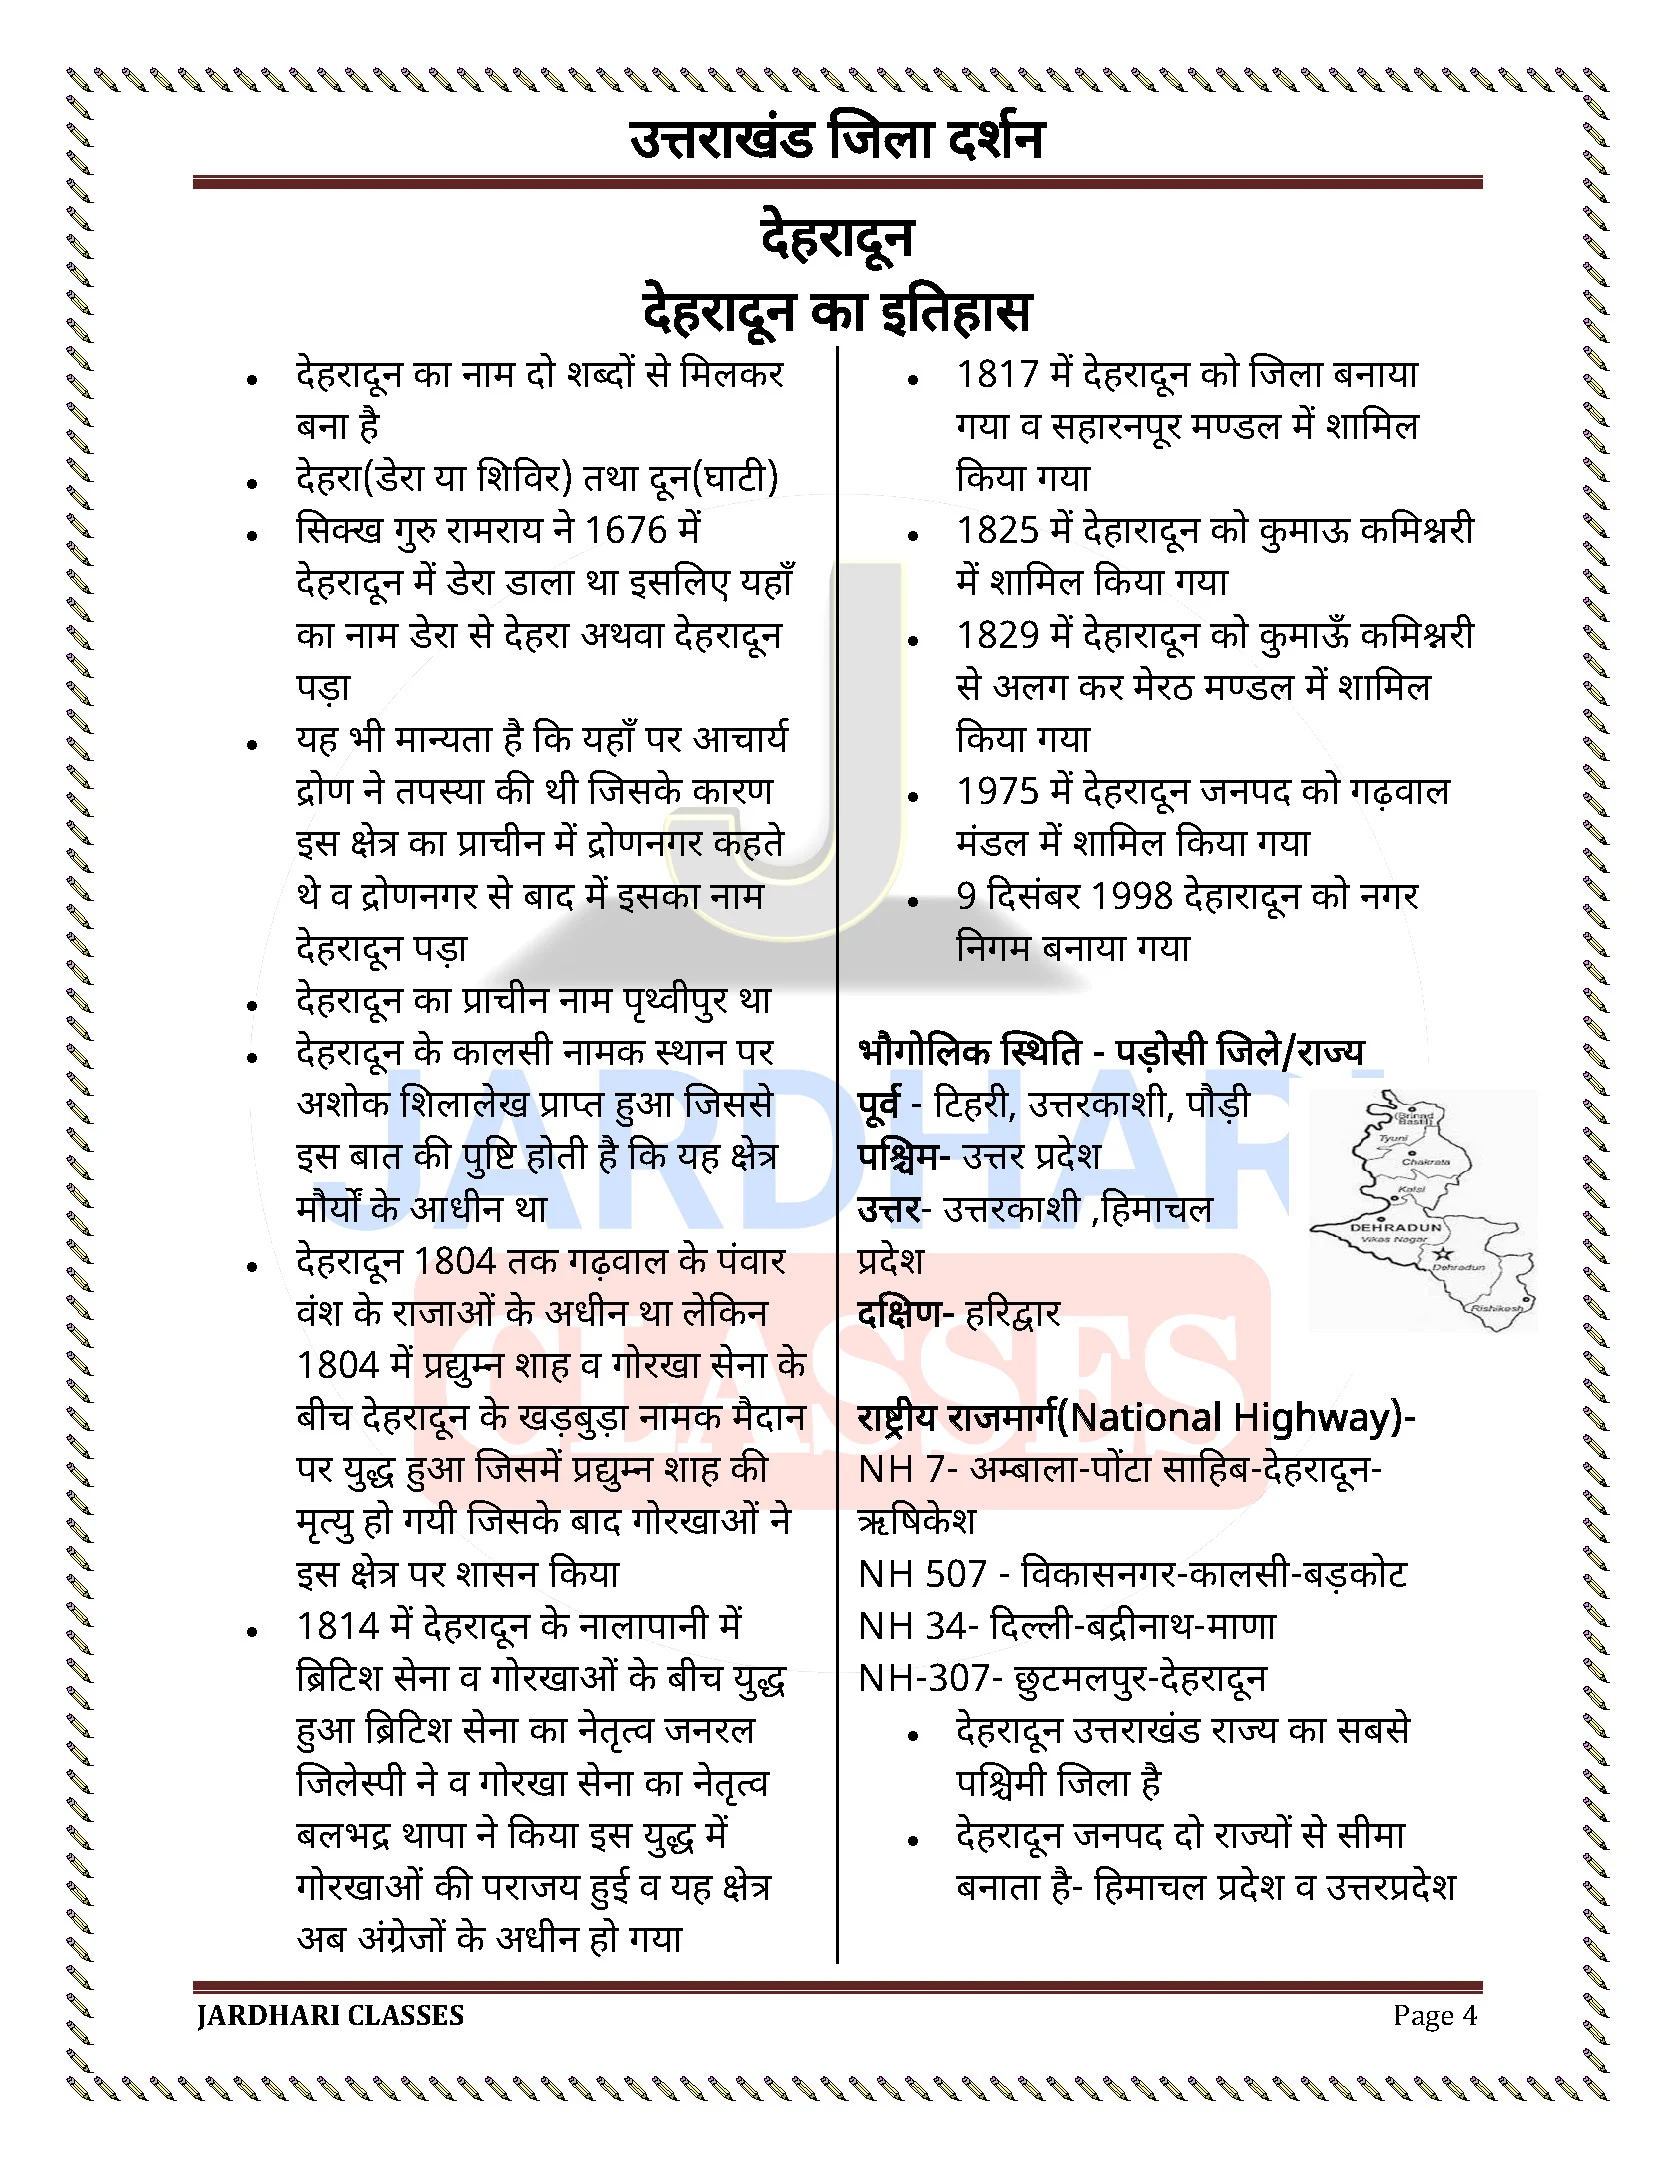 उत्तराखंड जिला दर्शन
देहरादून
देहरादून का इतिहास
• देहरादून का नाम दो शब्दों से मिलकर
बना है
• देहरा(डेरा या शिविर) तथा दून(घाटी)
• सिक्ख गुरु रामराय ने 1676 में
देहरादून में डेरा डाला था इसलिए यहाँ
का नाम डेरा से देहरा अथवा देहरादून
पड़ा
• यह भी मान्यता है कि यहाँ पर आचार्य
द्रोण ने तपस्या की थी जिसके कारण
इस क्षेत्र का प्राचीन में द्रोणनगर कहते
थे व द्रोणनगर से बाद में इसका नाम
देहरादून पड़ा
• देहरादून का प्राचीन नाम पृथ्वीपुर था
• देहरादून के कालसी नामक स्थान पर
अशोक शिलालेख प्राप्त हुआ जिससे
इस बात की पुष्टि होती है कि यह क्षेत्र
मौर्यों के आधीन था
• देहरादून 1804 तक गढ़वाल के पंवार
वंश के राजाओं के अधीन था लेकिन
1804 में प्रद्युम्न शाह व गोरखा सेना के
बीच देहरादून के खड़बुड़ा नामक मैदान
पर युद्ध हुआ जिसमें प्रद्युम्न शाह की
मृत्यु हो गयी जिसके बाद गोरखाओं ने
इस क्षेत्र पर शासन किया
• 1814 में देहरादून के नालापानी में
ब्रिटिश सेना व गोरखाओं के बीच युद्ध
हुआ ब्रिटिश सेना का नेतृत्व जनरल
जिलेस्पी ने व गोरखा सेना का नेतृत्व
बलभद्र थापा ने किया इस युद्ध में
गोरखाओं की पराजय हुई व यह क्षेत्र
अब अंग्रेजों के अधीन हो गया
• 1817 में देहरादून को जिला बनाया
गया व सहारनपूर मण्डल में शामिल
किया गया
• 1825 में देहारादून को कुमाऊ कमिश्नरी
में शामिल किया गया
• 1829 में देहारादून को कुमाऊँ कमिश्नरी
से अलग कर मेरठ मण्डल में शामिल
किया गया
• 1975 में देहरादून जनपद को गढ़वाल
मंडल में शामिल किया गया
• 9 दिसंबर 1998 देहारादून को नगर
निगम बनाया गया
भौगोलिक स्थिति - पड़ोसी जिले/राज्य
पूर्व - टिहरी, उत्तरकाशी, पौड़ी
पश्चिम- उत्तर प्रदेश
उत्तर- उत्तरकाशी ,हिमाचल
प्रदेश
दक्षिण- हरिद्वार
(Brinad
Basti)
Tyuni
Chakrata
Kalsi
DEHRADUN
Vikas Nagar
Dehradun
Rishikesh
राष्ट्रीय राजमार्ग(National Highway)-
NH 7- अम्बाला-पोंटा साहिब-देहरादून-
ऋषिकेश
NH 507 - विकासनगर-कालसी-बड़कोट
NH 34- दिल्ली-बद्रीनाथ-माणा
NH-307- छुटमलपुर-देहरादून
• देहरादून उत्तराखंड राज्य का सबसे
पश्चिमी जिला है
• देहरादून जनपद दो राज्यों से सीमा
बनाता है- हिमाचल प्रदेश व उत्तरप्रदेश
J
JARDHARI
CLASSES
JARDHARI CLASSES Page 4